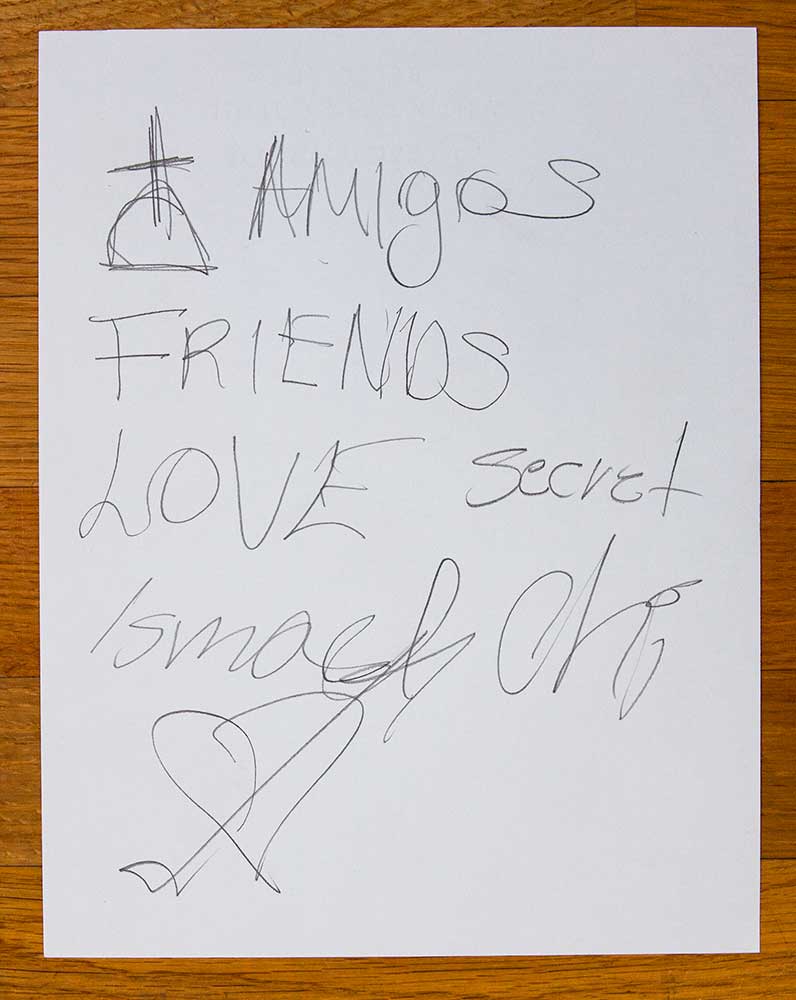 AMIgos
FRIENDS
LOVE secret
Ismael